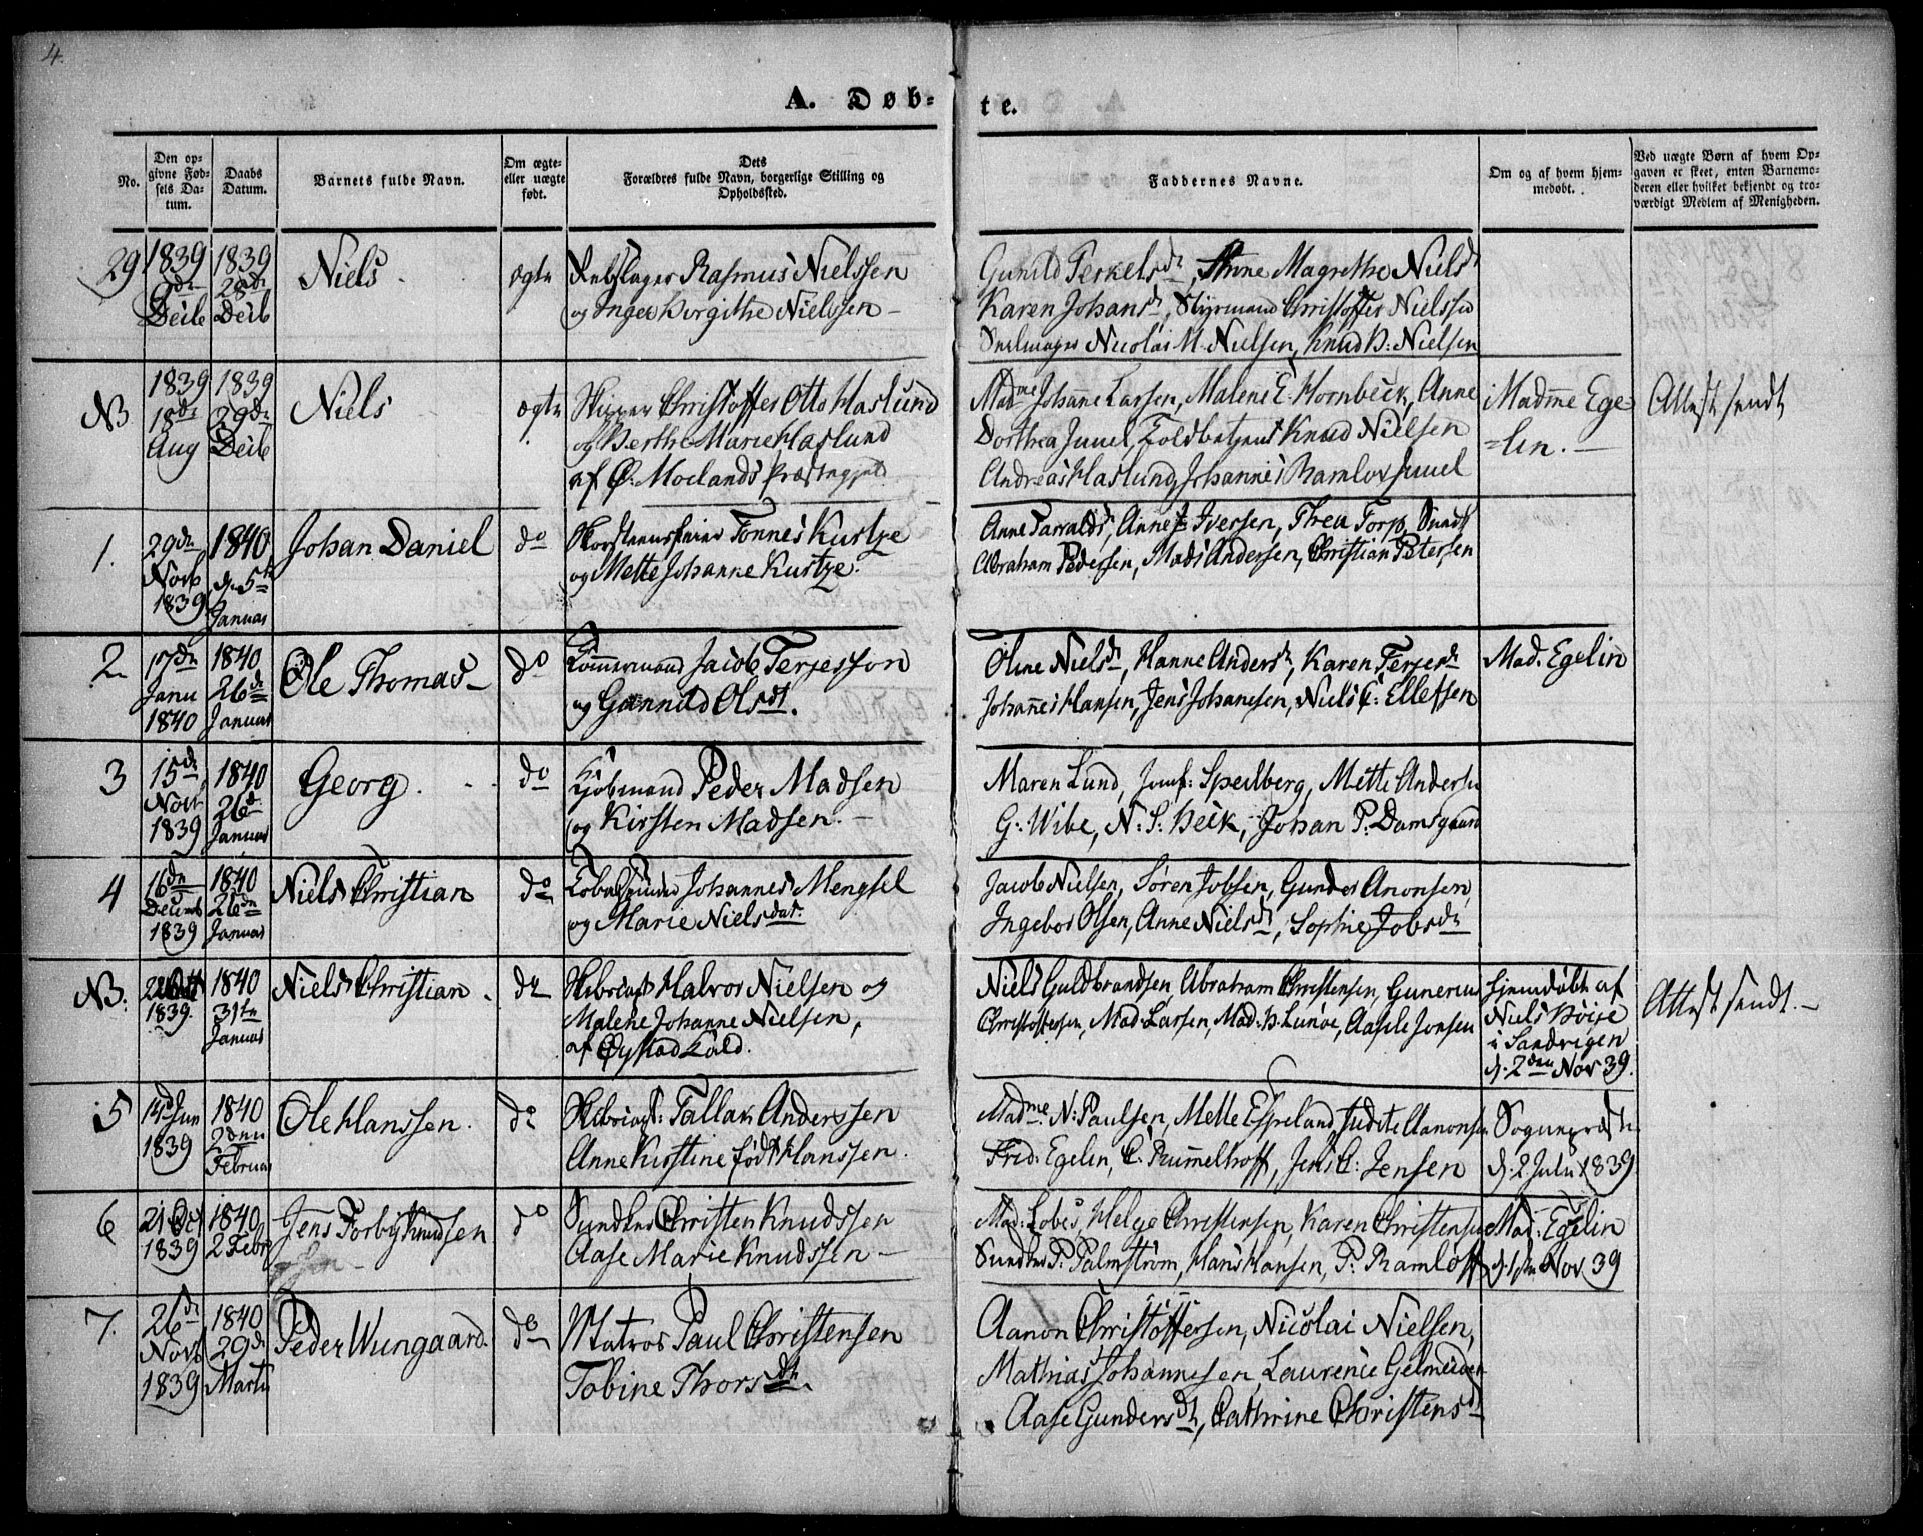 4.
A. Døb-
te.
No.
Den op-
givne Fød-
sels Da-
tum.
Daabs
Datum.
Barnets fulde Navn.
Om ægte-
eller uægte
født.
Dets
Forældres fulde Navn, borgerlige Stilling og
Opholdssted.
Faddernes Navne.
Om og af hvem hjem-
medøbt.
Ved uægte Børn af hvem Op-
gaven er skeet, enten Barnemo-
deren eller hvilket bekjendt og tro-
værdigt Medlem af Menigheden.
29
1839
Decb
1839
28de
Decb
Niels
ægte
Rebslager Rasmus Nielssen
og Inger Birgithe Nielssen
Gunild Terkelsdt, Anne Magrethe Nielsdt
Karen Johansdt, Styrmand Christoffer Nielssen
Seilmager Nicolai M. Nielsen, Knud B: Nielsen
NB
1839
18de
Aug
1839
29de
Decb
Niels
ægte
Skipper Christoffer Otto Haslund
og Berthe Marie Haslund
af Ø. Moelands Præstegjeld
Madme Johanne Larsen, Malene E. Hornbeck, Anne
Dorthea Juuel, Toldbetjent Knud Nielsen
Andreas Haslund, Johannes Ramlov Juuel
Madme Ege-
=lin.
Attest sendt
1.
29de
Novb
1839
1840
d. 5te
Januar
Johan Daniel
do
Skorsteensfeier Tønnes Kurtze
og Mette Johanne Kurtze.
Anne Tarraldsdt, Anne Iversen, Thea Torp, Sundt
Abraham Pedersen, Mads Andersen, Christian Petersen
2
17de
Janu
1840
1840
26de
Januar
Ole Thomas
do
Tømmermand Jacob Terjesson
og Gunnild Olsdt.
Oline Nielsdt, Hanne Andersdt, Karen Terjesdt
Johannes Hansen, Jens Johanesen, Niels C: Ellefsen
Mad. Egelin
3
15de
Novb
1839
1840
26de
Januar
Georg.
do
Kjøbmand Peder Madsen
og Kirsten Madsen.
Maren Lund, Jomf: Speilberg, Mette Andersen
G: Wibe, N: S: Beck, Johan P: Damsgaard
4
16de
Decemb
1839
1840
26de
Januar
Niels Christian
do
Tobaksspinder Johannes Mengsel
og Marie Nielsdat.
Jacob Nielsen, Søren Jobsen, Gunder Anonsen,
Ingebor Olsen, Anne Nielsdt, Sophie Jobsdt
NB.
1839.
1840
31te
Januar
Niels Christian.
do
Skibscapt Halvor Nielsen og
Malene Johanne Nielsen,
af Øystad Sold.
Niels Guldbrandsen, Abraham Christensen, Gunerius
Christoffersen, Mad: Larsen, Mad: B. Lunøe, Aasele Jonsen
Hjemdøbt af
Niels Böije
i Sandvigen
d. 2den Nov 39.
Attest sendt.
5
Jun
1839
1840
2den
Februar
Ole Hanssen.
do
Skibscapt: Tallak Anderssen
Anne Kirstine født Hanssen.
Madme N: Paulsen, Mette Espeland, Judite Aanonsen
Frid. Egelin, C. Rummelhoff, Jens C: Jensen
Sognepræsten
d. 2 Julii 1839
6
21 Oct
1839
1840
2 Febr
Jens Torbjø Knudsen
do
Christen Knudssen
Aase Marie Knudssen
Mad: Lobes, Helge Christensen, Karen Christensen
P: Palmstrøm, Hans Hansen, P: Ramløff
Mad: Egelin
d. 1ste Nov. 39
7.
26de
Novb
1839
1840
29de
Marts
Peder Wungaard.
do
Matros Paul Christensen
Tobine Thorsdtr.
Aanon Christoffersen, Nicolai Nielsen,
Mathias Johannesen, Laurence Gelmeiden
Aase Gundersdt, Cathrine Christensdt